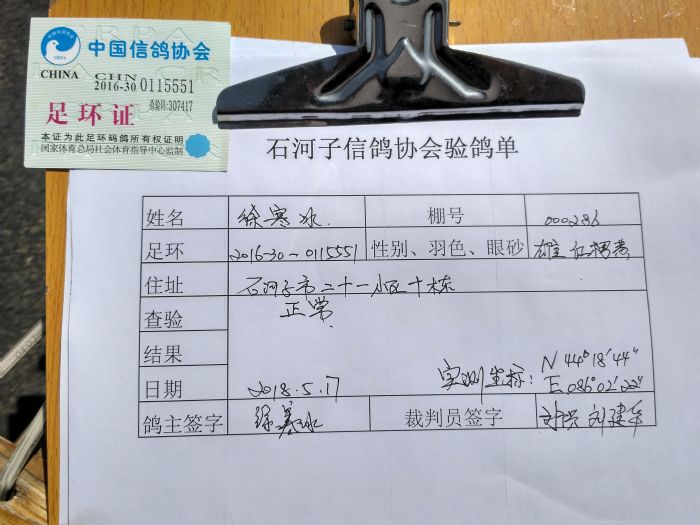 中国信鸽协会
CHINA CHN
2016-30 0115551
查验码:307417
足环证
本证为此足环码鸽所有权证明
国家体育总局社会体育指导中心监制
石河子信鸽协会验鸽单
姓名 徐寒冰 棚号 000286
足环 2016-30-0115551 性别、羽色、眼砂 雄 红楞 黄
住址 石河子市二十一小区十栋
查验 正常
结果
实测坐标: N 44°18′44″
日期 2018.5.17 E 086°02′22″
鸽主签字 徐寒冰 裁判员签字 刘建华